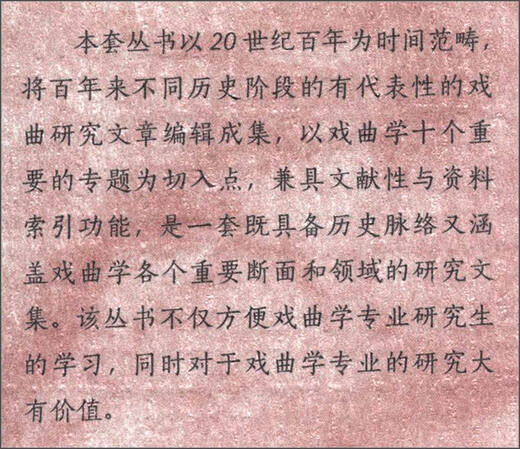 本套丛书以20世纪百年为时间范畴，
将百年来不同历史阶段的有代表性的戏
曲研究文章编辑成集，以戏曲学十个重
要的专题为切入点，兼具文献性与资料
索引功能，是一套既具备历史脉络又涵
盖戏曲学各个重要断面和领域的研究文
集。该丛书不仅方便戏曲学专业研究生
的学习，同时对于戏曲学专业的研究大
有价值。